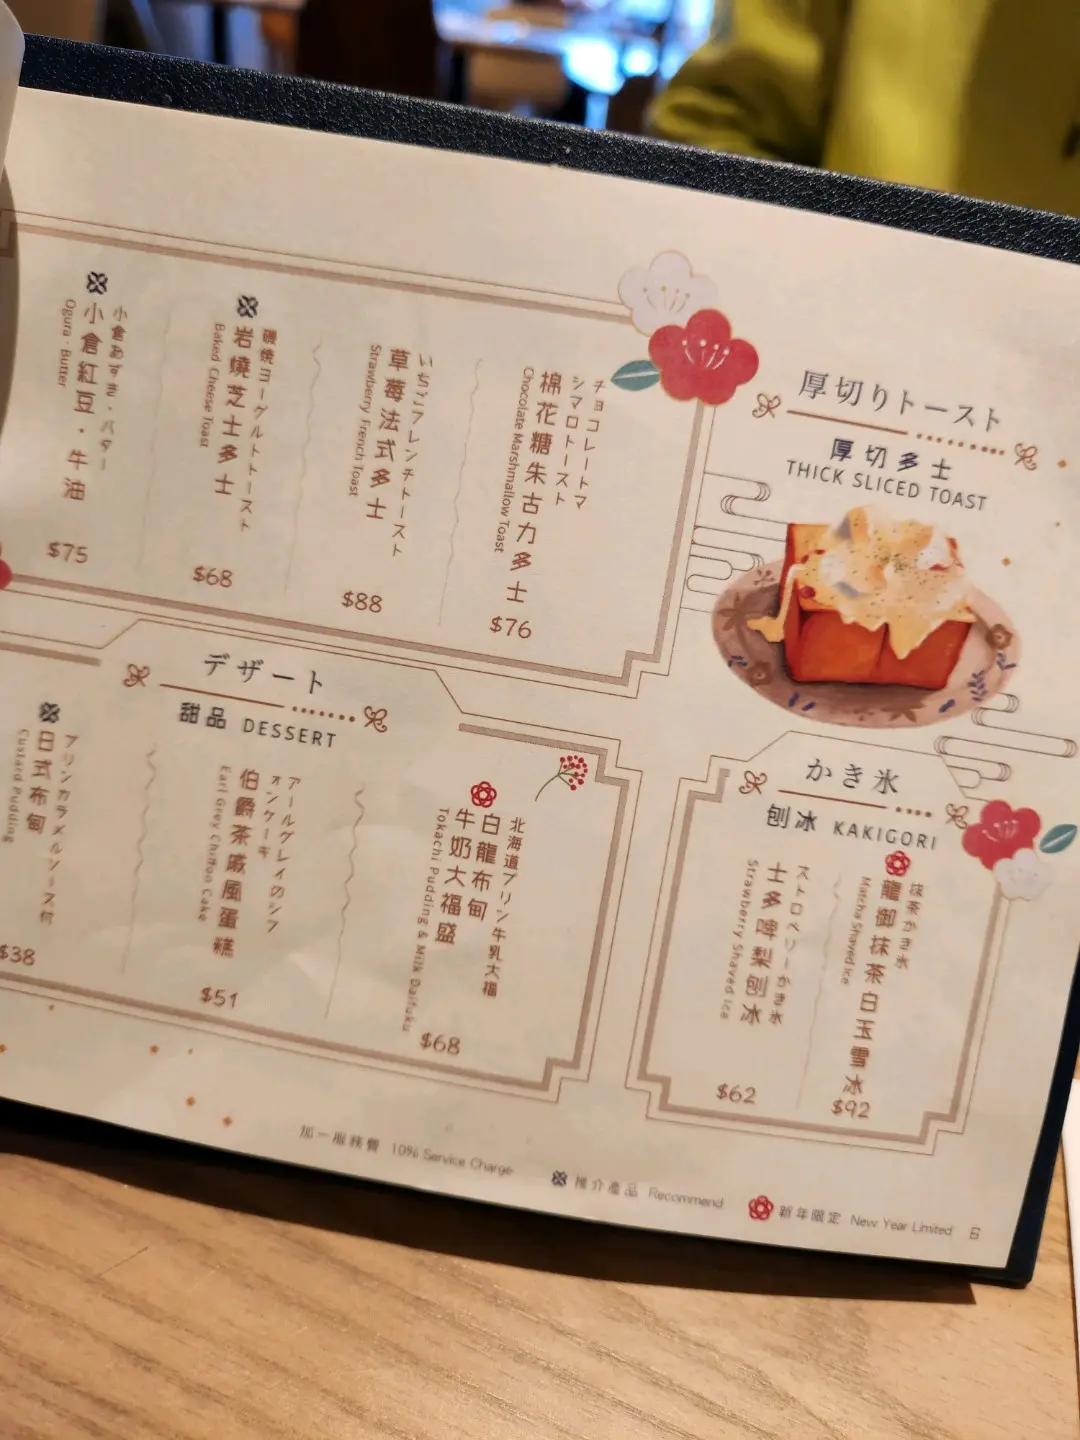 厚切りトースト
厚切多士
THICK SLICED TOAST
チョコレートマ
シマロトースト
棉花糖朱古力多士
Chocolate Marshmallow Toast
$76
いちごフレンチトースト
草莓法式多士
Strawberry French Toast
$88
磯焼ヨーグルトトースト
岩燒芝士多士
Baked Cheese Toast
$68
小倉あずき・バター
小倉紅豆・牛油
Ogura · Butter
$75
かき氷
刨冰 KAKIGORI
抹茶かき氷
龍御抹茶白玉雪冰
Matcha Shaved Ice
$92
ストロベリーかき氷
士多啤梨刨冰
Strawberry Shaved Ice
$62
デザート
甜品 DESSERT
北海道プリン牛乳大福
白龍布甸
牛奶大福盛
Tokachi Pudding & Milk Daifuku
$68
アールグレイのシフ
ォンケーキ
伯爵茶戚風蛋糕
Earl Grey Chiffon Cake
$51
プリンカラメルソース付
日式布甸
Custard Pudding
$38
加一服務費 10% Service Charge
推介產品 Recommend
新年限定 New Year Limited
6